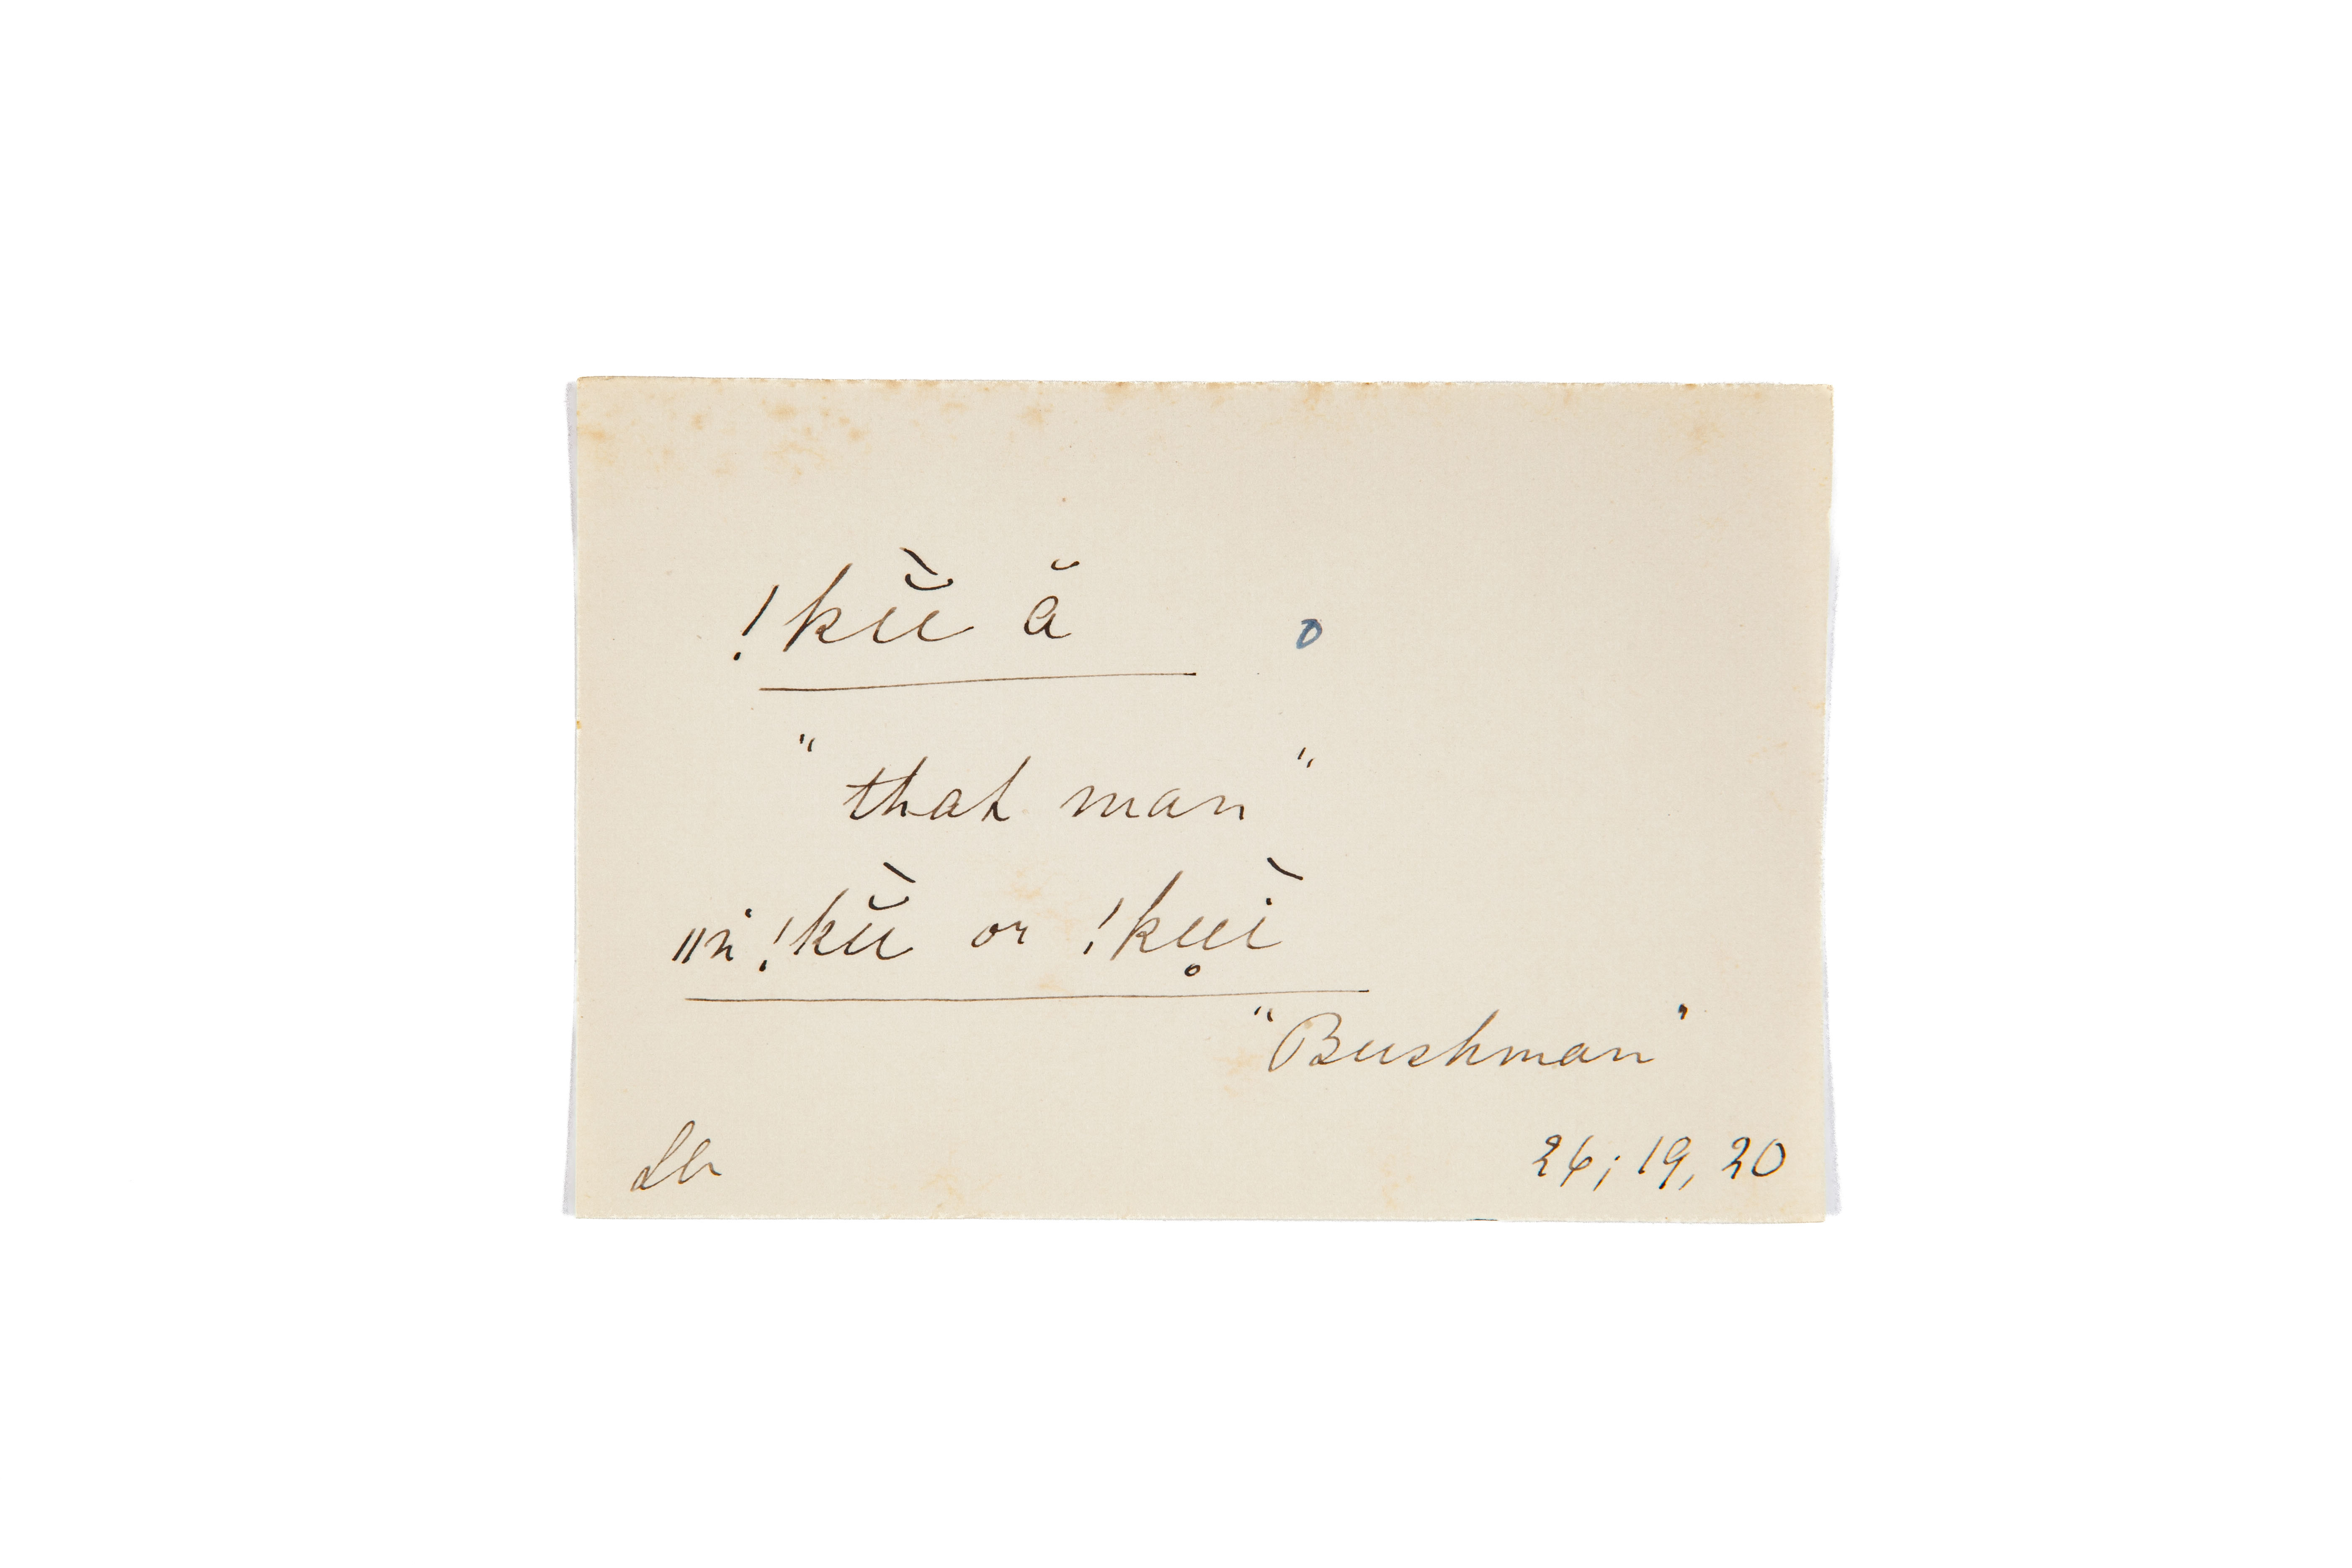 !kŭ̀ ă o
"that man"
ǁṅ !kŭ̀ or !ku̥ì
"Bushman"
26; 19, 20